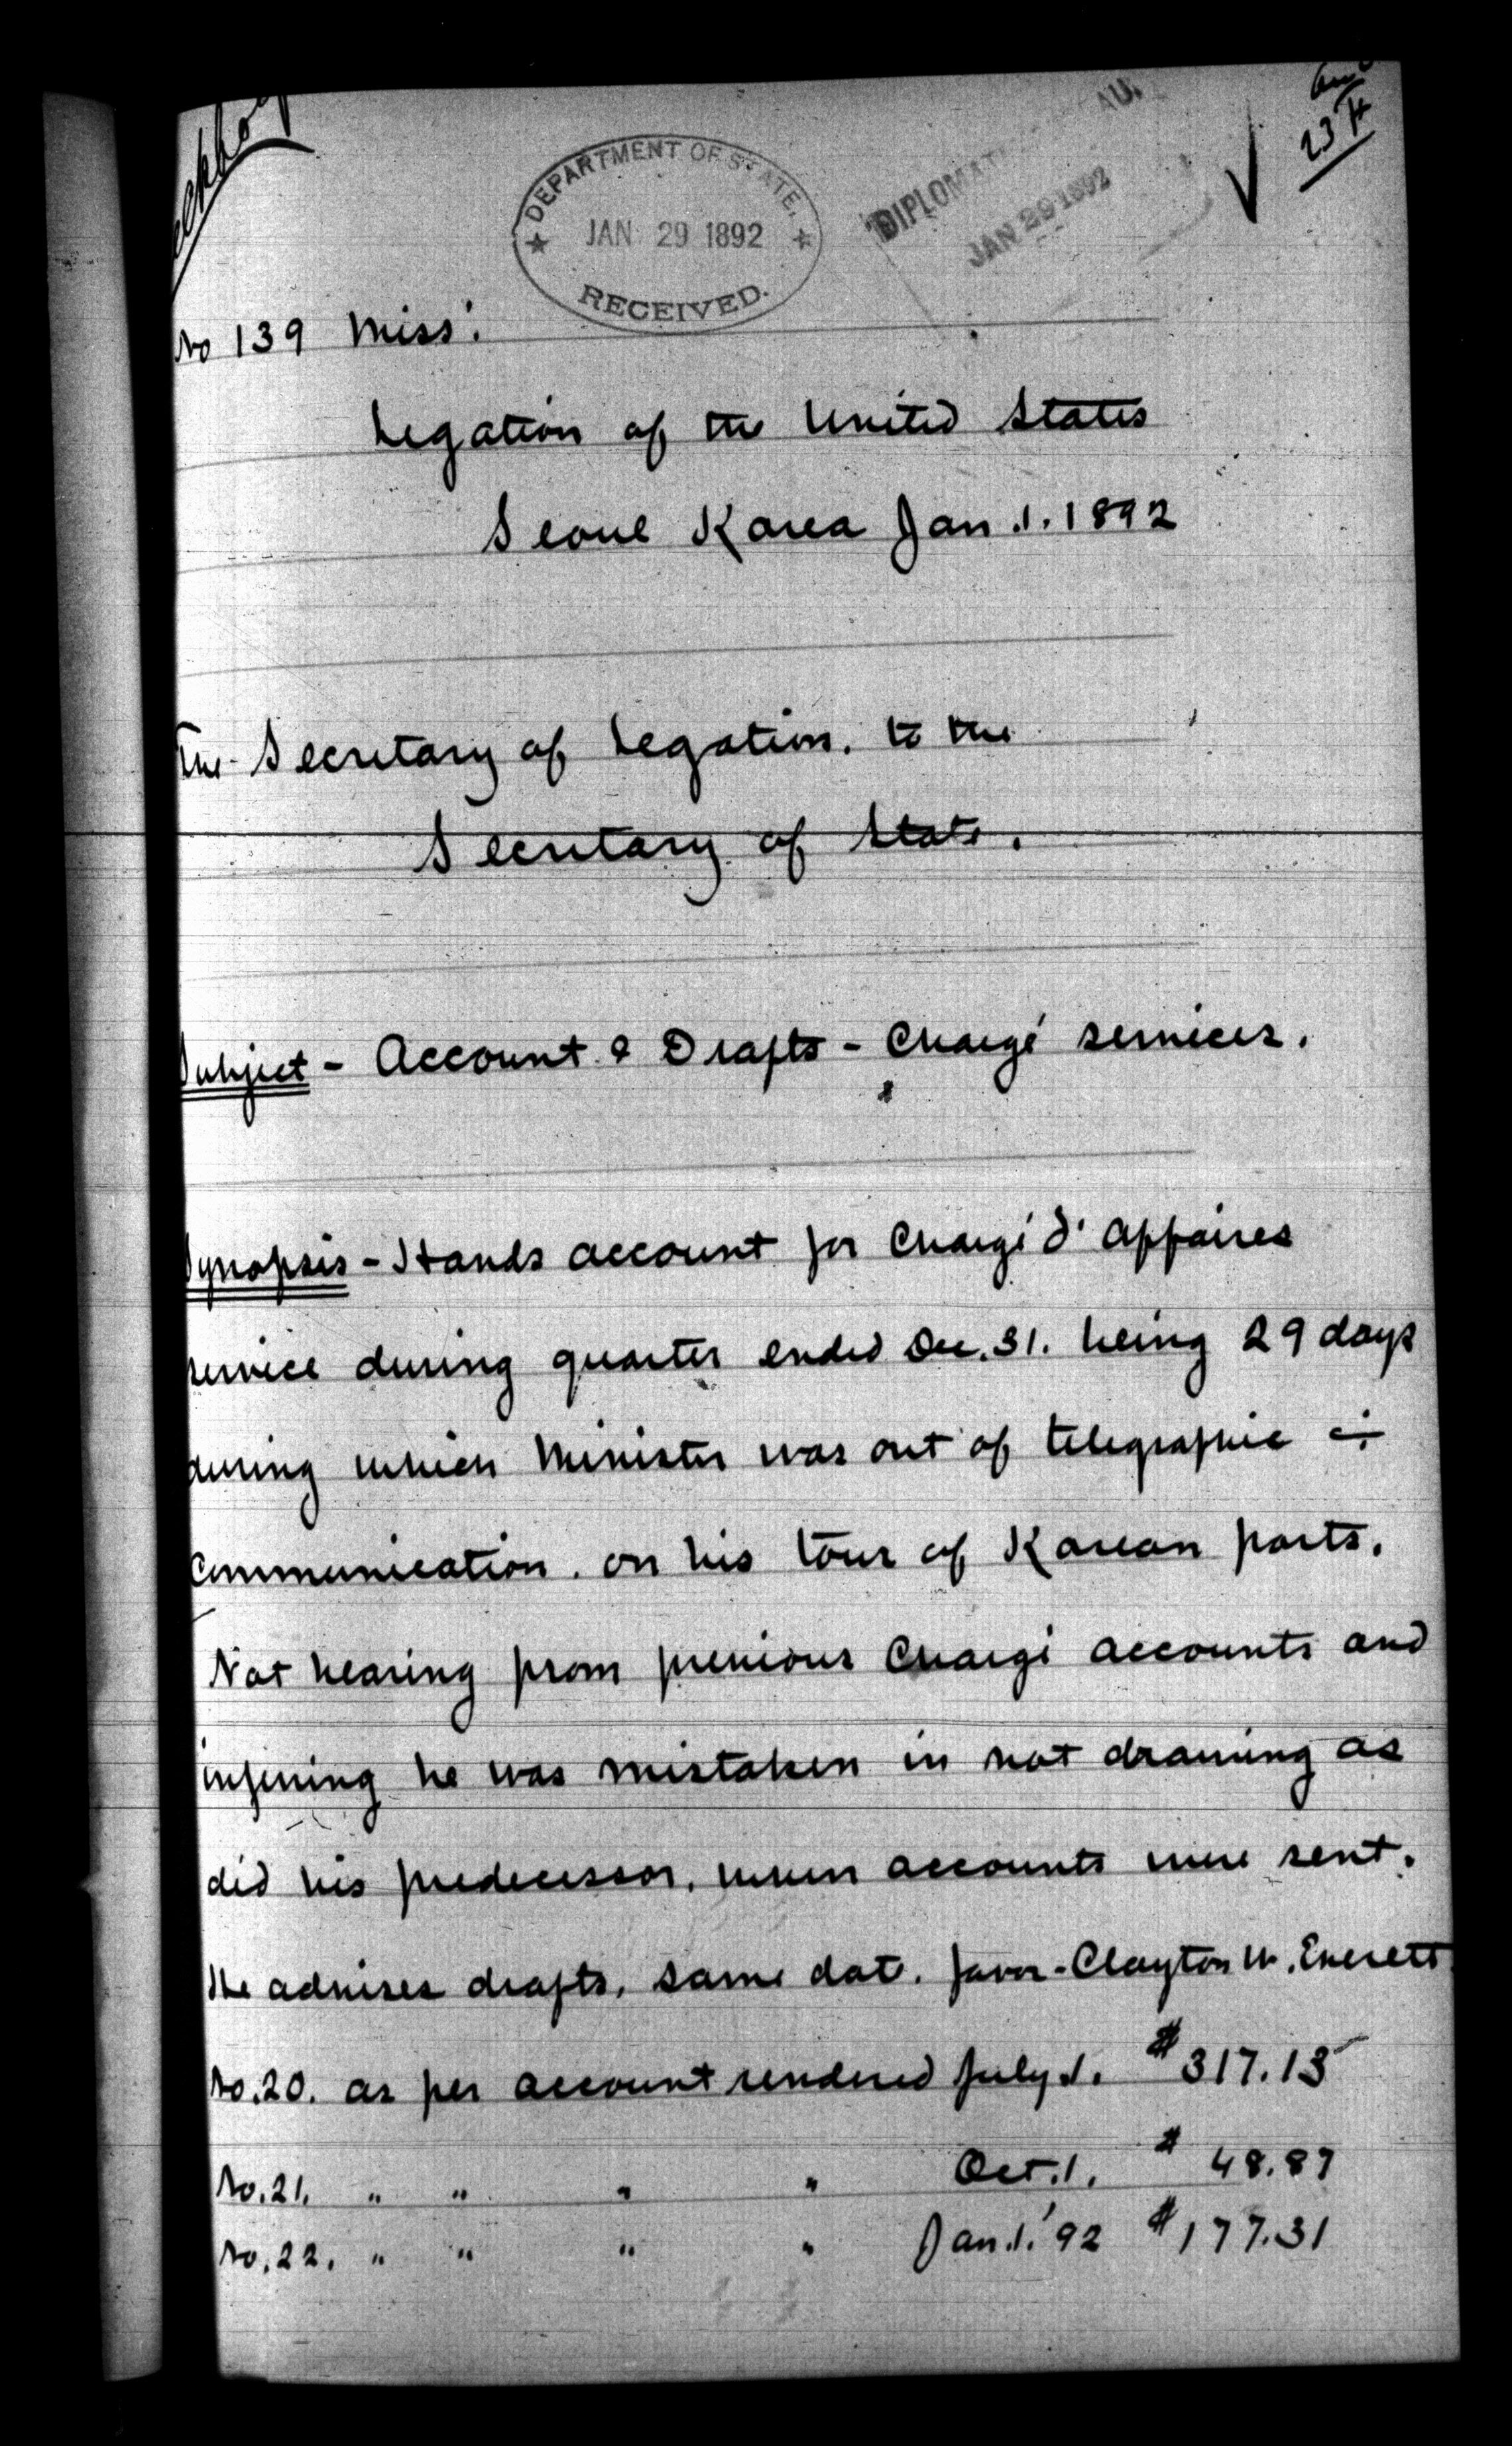 DEPARTMENT OF STATE.
JAN 29 1892
RECEIVED.
DIPLOMAT
JAN 29 1892
23
No 139 Miss'.
Legation of the United States
Seoul Korea Jan.1.1892
The Secretary of Legation. to the
Secretary of State.
Subject - Account & Drafts - Chargé services.
Synopsis - Hands account for Chargé d' affaires
service during quarter ended Dec. 31. being 29 days
during which Minister was out of telegraphic
communication. on his tour of Korean ports.
Not hearing from previous Chargé accounts and
inferring he was mistaken in not drawing as
did his predecessor. when accounts were sent.
He advises drafts. same date. favor - Clayton W. Everett
No.20. as per account rendered July 1. $317.13
No.21. " " " " Oct.1. $ 48.87
No.22. " " " " Jan.1.'92 $177.31